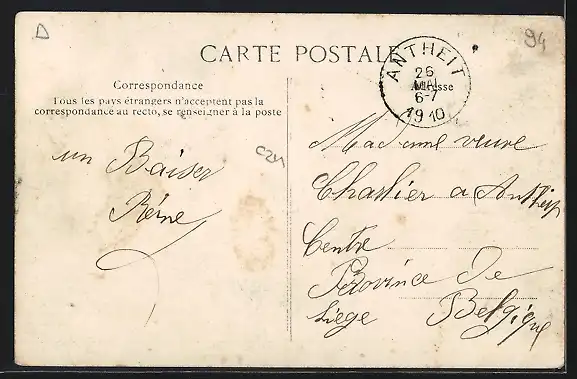 D
94
CARTE POSTALE
ANTHEIT
26
MAI
6-7
1910
Adresse
Correspondance
Tous les pays étrangers n'acceptent pas la
correspondance au recto, se renseigner à la poste
un Baiser
Reine
Madame veuve
Challier a Antheit
Centre
Province de
Liège
Belgique